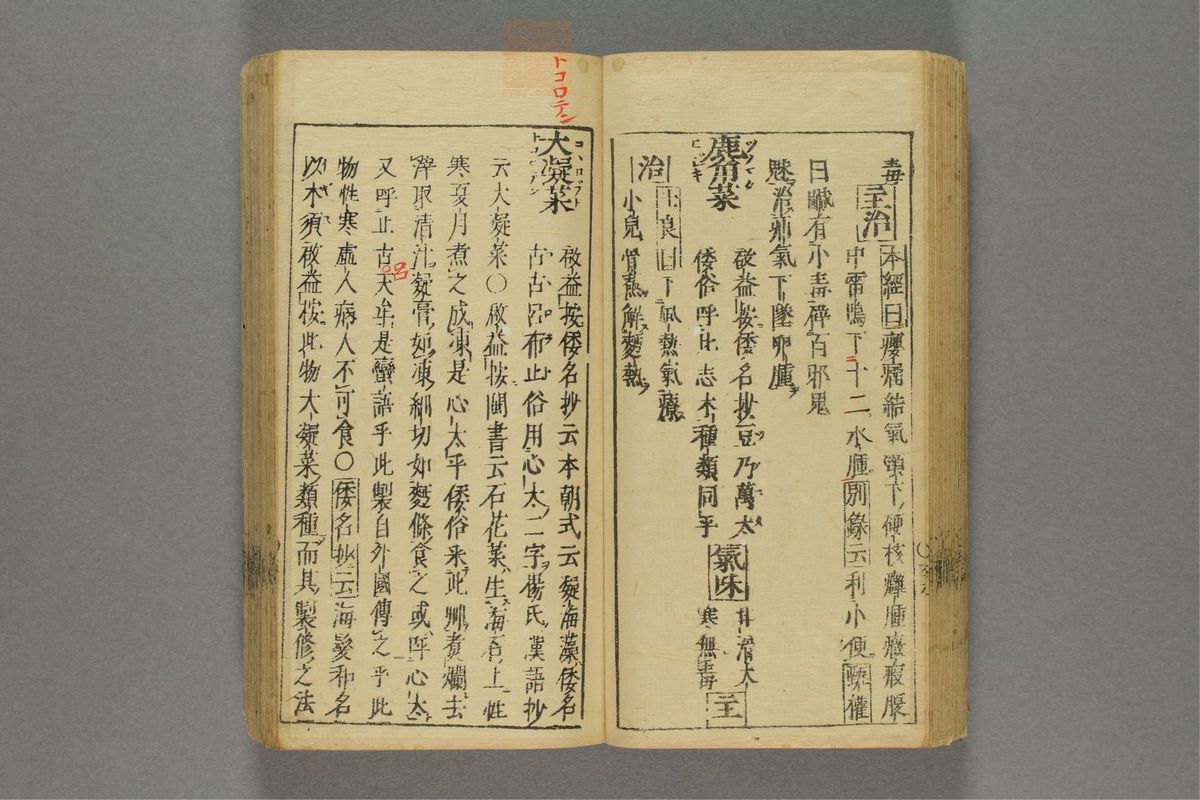 毒
主治
本經曰癭瘤結氣頸下硬核癰腫癥瘕腹
中雷鳴下十二水腫別錄云利小便甄權
曰鹹有小毒碎百邪鬼
魅治疝氣下墜卵腫
鹿角菜
啟益按倭名抄云豆乃萬太
倭俗呼比志木種類同乎
氣味
甘滑大
寒無毒
主
治
士良曰下風熱氣療
小兒骨蒸解麵熱
トコロテン
大凝菜
啟益按倭名抄云本朝式云凝海藻倭名
古古呂布止俗用心太二字楊氏漢語抄
云大凝菜〇啟益按閩書云石花菜生海石上性
寒夏月煮之成凍是心太乎倭俗采此煮爛去
滓取清汁凝膏如凍細切如麵條食之或呼心太
又呼止古呂天牟是蠻語乎此製自外國傳之乎此
物性寒虛人病人不可食〇倭名抄云海髮和名
以木須啟益按此物大凝菜類種而其製修之法